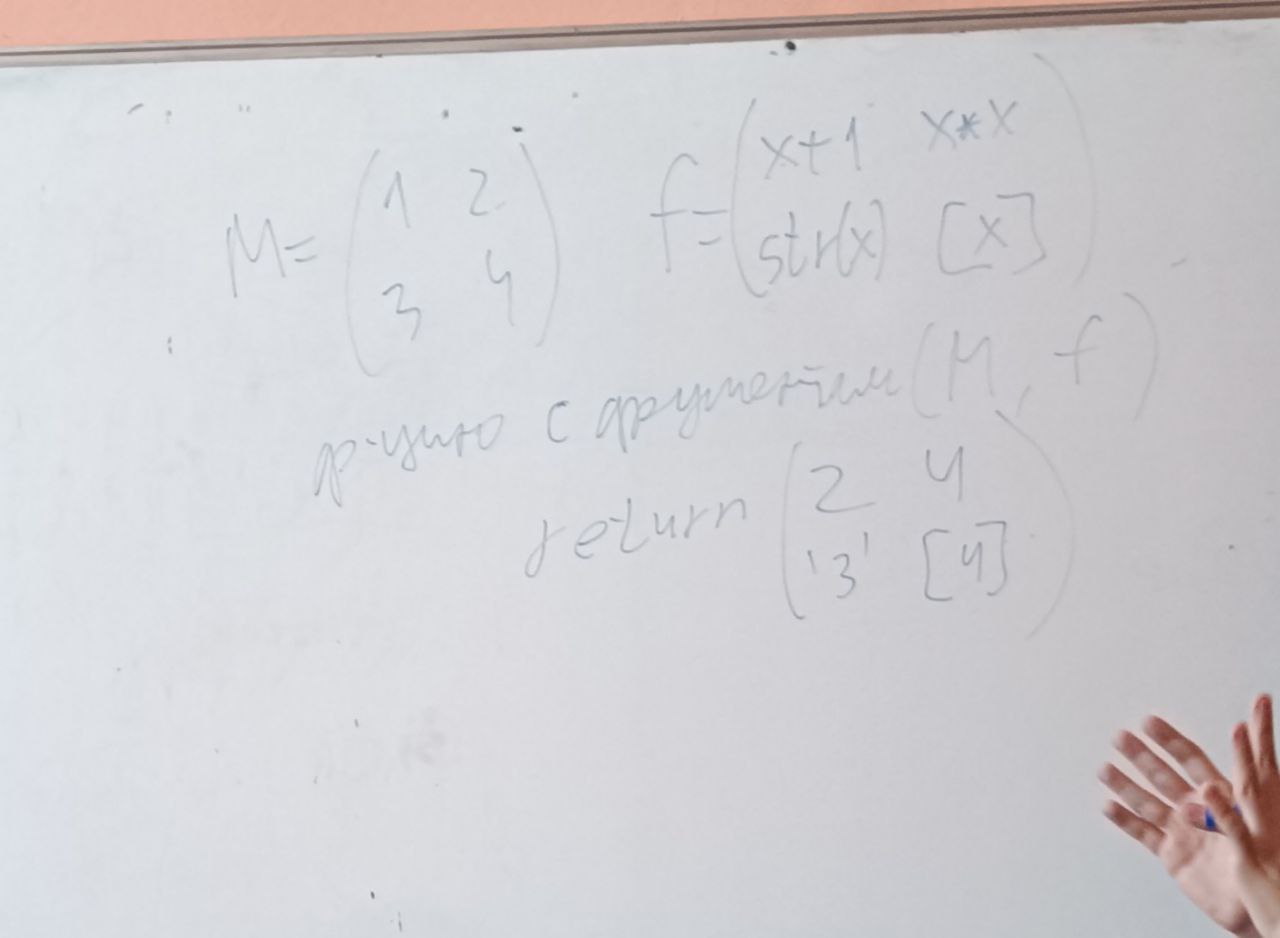 M= (1 2 f= (x+1 x*x
3 4) str(x) [x])
ф-цию с аргументами (M, f)
return (2 4
'3' [4])